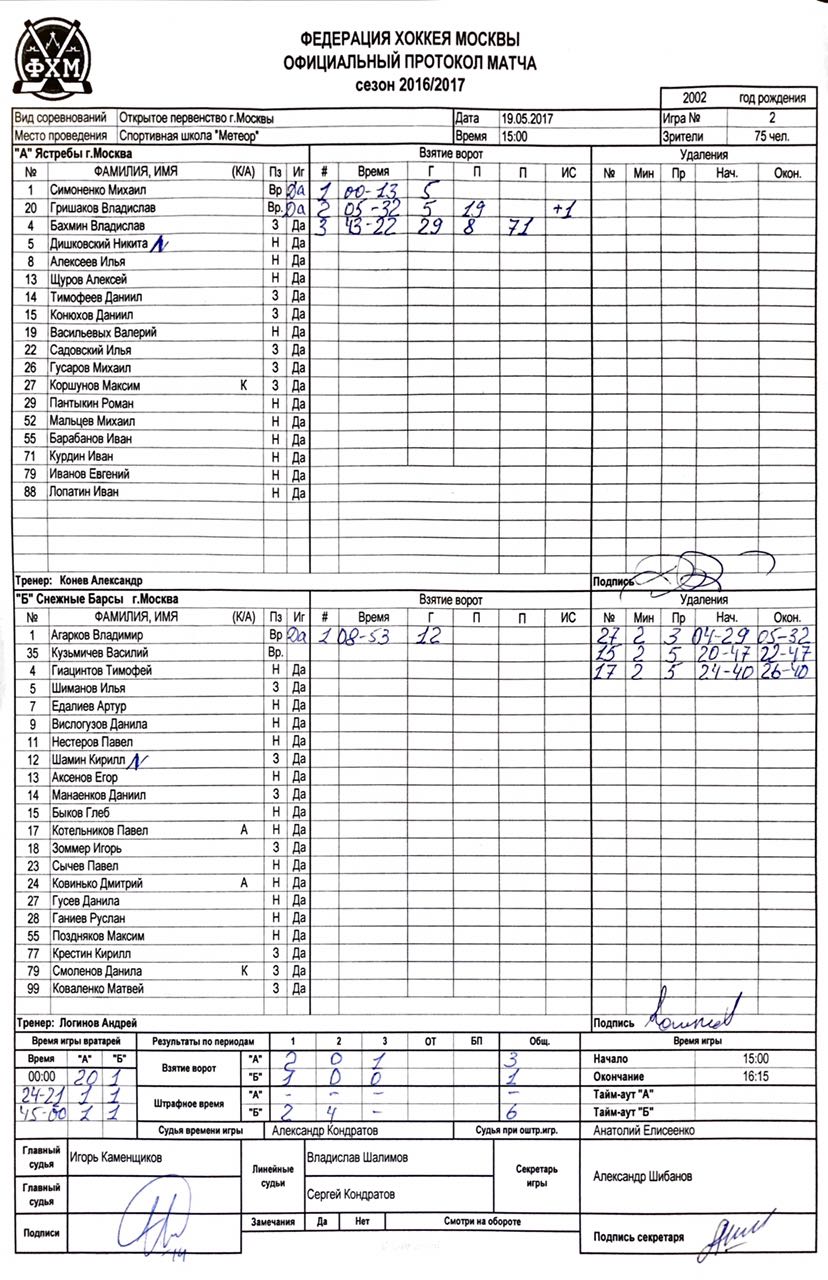 ФХМ
ФЕДЕРАЦИЯ ХОККЕЯ МОСКВЫ
ОФИЦИАЛЬНЫЙ ПРОТОКОЛ МАТЧА
сезон 2016/2017
2002 год рождения
Вид соревнований Открытое первенство г.Москвы Дата 19.05.2017 Игра № 2
Место проведения Спортивная школа "Метеор" Время 15:00 Зрители 75 чел.
"А" Ястребы г.Москва Взятие ворот Удаления
№ ФАМИЛИЯ, ИМЯ (К/А) Пз Иг # Время Г П П ИС № Мин Пр Нач. Окон.
1 Симоненко Михаил Вр Да 1 00-13 5
20 Гришаков Владислав Вр. Да 2 05-32 5 19 +1
4 Бахмин Владислав З Да 3 43-22 29 8 71
5 Дишковский Никита Н Да
8 Алексеев Илья Н Да
13 Щуров Алексей Н Да
14 Тимофеев Даниил З Да
15 Конюхов Даниил З Да
19 Васильевых Валерий Н Да
22 Садовский Илья З Да
26 Гусаров Михаил З Да
27 Коршунов Максим К З Да
29 Пантыкин Роман Н Да
52 Мальцев Михаил Н Да
55 Барабанов Иван Н Да
71 Курдин Иван Н Да
79 Иванов Евгений Н Да
88 Лопатин Иван Н Да
Тренер: Конев Александр Подпись
"Б" Снежные Барсы г.Москва Взятие ворот Удаления
№ ФАМИЛИЯ, ИМЯ (К/А) Пз Иг # Время Г П П ИС № Мин Пр Нач. Окон.
1 Агарков Владимир Вр Да 1 08-53 12 27 2 3 04-29 05-32
35 Кузьмичев Василий Вр. 15 2 5 20-47 22-47
4 Гиацинтов Тимофей Н Да 17 2 5 24-40 26-40
5 Шиманов Илья З Да
7 Едалиев Артур Н Да
9 Вислогузов Данила Н Да
11 Нестеров Павел Н Да
12 Шамин Кирилл З Да
13 Аксенов Егор Н Да
14 Манаенков Даниил З Да
15 Быков Глеб Н Да
17 Котельников Павел А Н Да
18 Зоммер Игорь З Да
23 Сычев Павел Н Да
24 Ковинько Дмитрий А Н Да
27 Гусев Данила Н Да
28 Ганиев Руслан Н Да
55 Поздняков Максим Н Да
77 Крестин Кирилл З Да
79 Смоленов Данила К З Да
99 Коваленко Матвей З Да
Тренер: Логинов Андрей Подпись
Время игры вратарей Результаты по периодам 1 2 3 ОТ БП Общ. Время игры
Время "А" "Б" Взятие ворот "А" 2 0 1 3 Начало 15:00
00:00 20 1 "Б" 1 0 0 1 Окончание 16:15
24-21 1 1 Штрафное время "А" - - - - Тайм-аут "А"
45-00 1 1 "Б" 2 4 - 6 Тайм-аут "Б"
Судья времени игры Александр Кондратов Судья при оштр.игр. Анатолий Елисеенко
Главный судья Игорь Каменщиков Линейные судьи Владислав Шалимов Секретарь игры Александр Шибанов
Главный судья Сергей Кондратов
Подписи Замечания Да Нет Смотри на обороте Подпись секретаря